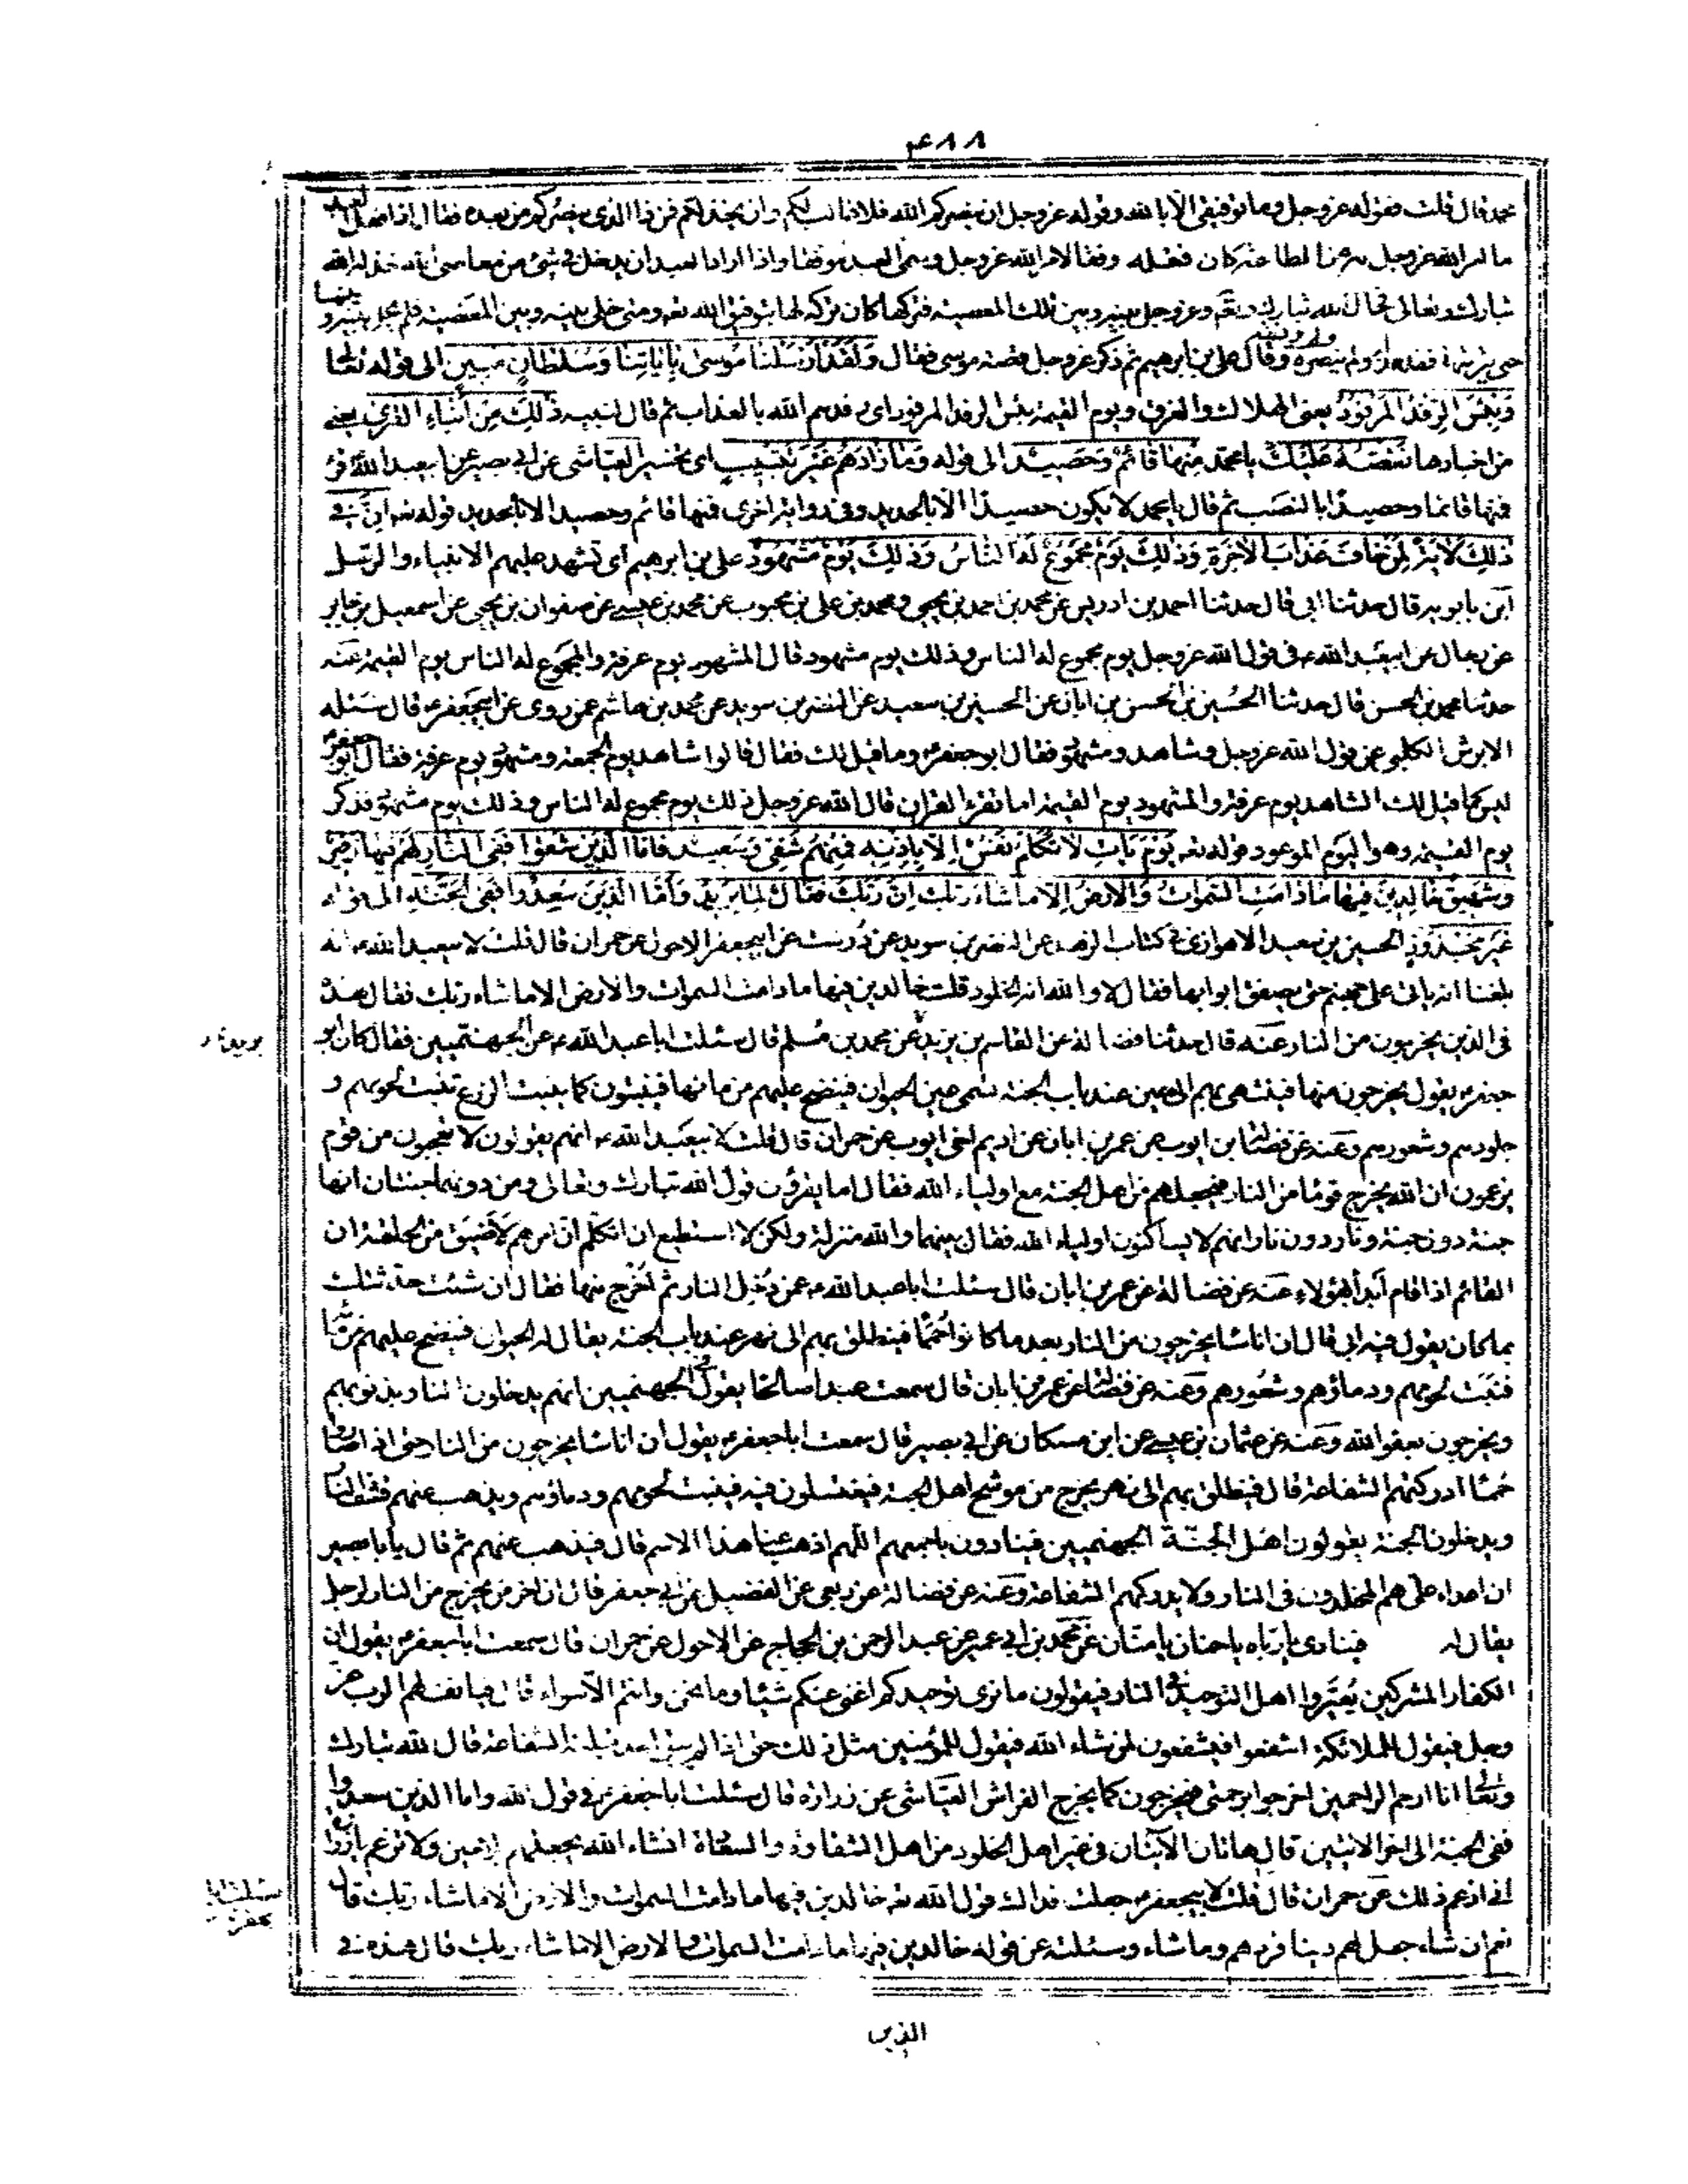 ۴۸۸
محمد قال قلت فقوله عز وجل وما توفيقى الا بالله وقوله عز وجل ان ينصركم الله فلا غالب لكم وان يخذلكم فمن ذا الذى ينصركم من بعده فقال اذا فعل العبد
ما امر الله عز وجل به من الطاعة كان فعله وفقا لامر الله عز وجل وسمى العبد موفقا واذا اراد العبد ان يدخل فى شئ من معاصى الله فحال الله
تبارك وتعالى بينه وبين تلك المعصية فتركها كان تركه لها بتوفيق الله تعه ومتى خلى بينه وبين المعصية فلم يحل بينه وبينها
حتى يرتكبها فقد خذله ولم ينصره ولم يوفقه وقال على بن ابرهيم ثم ذكر عز وجل قصة موسى فقال وَلَقَدْ اَرْسَلْنا مُوسى بِاياتِنا وَسُلْطانٍ مُبينٍ الى قوله تعالى
وَبِئْسَ الرِّفْدُ الْمَرْفُودُ يعنى الهلاك والغرق ويوم القيمة بئس الرفد المرفود اى رفدهم الله بالعذاب ثم قال لنبيه ذلِكَ مِنْ اَنْباءِ الْقُرى يعنى
من اخبارها نَقُصُّهُ عَلَيْكَ يا محمد مِنْها قائِمٌ وَحَصيدٌ الى قوله وَما زادَهُمْ غَيْرَ تَتْبيبٍ اى تخسير العياشى عن ابى بصير عن ابيعبد الله قرء
فمنها قائما وحصيدا بالنصب ثم قال يا محمد لا يكون حصيدا الا بالحديد وفى رواية اخرى فمنها قائم وحصيد الا بالحديد قوله تعه اِنَّ فى
ذلِكَ لَايَةً لِمَنْ خافَ عَذابَ الْاخِرَةِ ذلِكَ يَوْمٌ مَجْمُوعٌ لَهُ النّاسُ وَذلِكَ يَوْمٌ مَشْهُودٌ على بن ابرهيم اى تشهد عليهم الانبياء والرسل
ابن بابويه قال حدثنا ابى قال حدثنا احمد بن ادريس عن محمد بن احمد بن يحيى ومحمد بن على بن محبوب عن محمد بن عيسى عن صفوان بن يحيى عن اسمعيل بن جابر
عن رجال عن ابيعبد الله ع فى قول الله عز وجل يوم مجموع له الناس وذلك يوم مشهود قال المشهود يوم عرفة والمجموع له الناس يوم القيمة عنه
حدثنا محمد بن الحسن قال حدثنا الحسين بن الحسن بن ابان عن الحسين بن سعيد عن النضر بن سويد عن محمد بن هاشم عمن روى عن ابيجعفر ع قال سئله
الابرش الكلبى عن قول الله عز وجل وشاهد ومشهود فقال ابو جعفر ع وما قيل لك فقال قالوا شاهد يوم الجمعة ومشهود يوم عرفة فقال ابو جعفر ع
ليس كما قيل لك الشاهد يوم عرفة والمشهود يوم القيمة اما تقرء القران قال الله عز وجل ذلك يوم مجموع له الناس وذلك يوم مشهود فذكر
يوم القيمة وهو اليوم الموعود قوله تعه يَوْمَ يَأْتِ لا تَكَلَّمُ نَفْسٌ اِلّا بِاِذْنِهِ فَمِنْهُمْ شَقِىٌّ وَسَعيدٌ فَاَمَّا الَّذينَ شَقُوا فَفِى النّارِ لَهُمْ فيها زَفيرٌ
وَشَهيقٌ خالِدينَ فيها ما دامَتِ السَّمواتُ وَالْاَرْضُ اِلّا ما شاءَ رَبُّكَ اِنَّ رَبَّكَ فَعّالٌ لِما يُريدُ وَاَمَّا الَّذينَ سُعِدُوا فَفِى الْجَنَّةِ الى قوله
غَيْرَ مَجْذُوذٍ الحسين بن سعيد الاهوازى فى كتاب الزهد عن النضر بن سويد عن درست عن ابيجعفر الاحول عن حمران قال قلت لابيعبد الله ع انه
بلغنا انه ياتى على جهنم حتى يصفق ابوابها فقال لا والله انه الخلود قلت خالدين فيها ما دامت السموات والارض الا ما شاء ربك فقال هذه
فى الذين يخرجون من النار عنه قال حدثنا فضالة عن القاسم بن بريد عن محمد بن مسلم قال سئلت ابا عبد الله ع عن الجهنميين فقال كان ابو
جعفر ع يقول يخرجون منها فينتهى بهم الى عين عند باب الجنة تسمى عين الحيوان فينضح عليهم من مائها فينبتون كما ينبت الزرع تنبت لحومهم و
جلودهم وشعورهم وعنه عن فضالة بن ايوب عن عمر بن ابان عن اديم اخى ايوب عن حمران قال قلت لابيعبد الله ع انهم يقولون لا تعجبون من قوم
يزعمون ان الله يخرج قوما من النار فيجعلهم من اهل الجنة مع اولياء الله فقال اما يقرؤن قول الله تبارك وتعالى ومن دونهما جنتان انها
جنة دون جنة ونار دون نار انهم لا يساكنون اولياء الله فقال بينهما والله منزلة ولكن لا استطيع ان اتكلم ان امرهم لاضيق من الحلقة ان
القائم اذا قام لبدأ بهؤلاء عنه عن فضالة عن عمر بن ابان قال سئلت ابا عبد الله ع عمن دخل النار ثم اخرج منها فقال ان شئت حدثتك
بما كان يقول فيه ابى قال ان اناسا يخرجون من النار بعد ما كانوا حمما فينطلق بهم الى نهر عند باب الجنة يقال له الحيوان فينضح عليهم من مائه
فتنبت لحومهم ودماؤهم وشعورهم وعنه عن فضالة عن عمر بن ابان قال سمعت عبدا صالحا يقول فى الجهنميين انهم يدخلون النار بذنوبهم
ويخرجون بعفو الله وعنه عن عثمان بن عيسى عن ابن مسكان عن ابى بصير قال سمعت ابا جعفر ع يقول ان اناسا يخرجون من النار حتى اذا صاروا
حمما ادركتهم الشفاعة قال فينطلق بهم الى نهر يخرج من موشح اهل الجنة فيغتسلون فيه فينبت لحومهم ودماؤهم ويذهب عنهم قشف النار
ويدخلون الجنة يقولون اهل الجنة الجهنميين فينادون باجمعهم اللهم اذهب عنا هذا الاسم قال فيذهب عنهم ثم قال يا ابا بصير
ان اعداء على هم المخلدون فى النار ولا يدركهم الشفاعة وعنه عن فضالة عن ربعى عن الفضيل عن ابى جعفر قال ان اخر من يخرج من النار لرجل
يقال له فينادى يا رباه يا حنان يا منان عن محمد بن ابى عمير عن عبد الرحمن بن الحجاج عن الاحول عن حمران قال سمعت ابا جعفر ع يقول ان
الكفار المشركين يعيروا اهل التوحيد فى النار فيقولون ما نرى توحيدكم اغنى عنكم شيئا وما نحن وانتم الا سواء قال فيانف لهم الرب عز
وجل فيقول للملائكة اشفعوا فيشفعون لمن شاء الله فيقول للمؤمنين مثل ذلك حتى اذا لم يبق احد تبلغه الشفاعة قال الله تبارك
وتعالى انا ارحم الراحمين اخرجوا برحمتى فيخرجون كما يخرج الفراش العياشى عن زرارة قال سئلت ابا جعفر ع فى قول الله واما الذين سعدوا
ففى الجنة الى اخر الايتين قال هاتان الايتان فى غير اهل الخلود من اهل الشقاوة والسعادة ان شاء الله يجعلهم خارجين ولا تزعم يا زرارة
انى ازعم ذلك عن حمران قال قلت لابيجعفر ع جعلت فداك قول الله تعه خالدين فيها ما دامت السموات والارض الا ما شاء ربك قال
نعم ان شاء جعل لهم دنيا فردهم وما شاء وسئلته عن قوله خالدين فيها ما دامت السموات والارض الا ما شاء ربك قال هذه فى
الذين